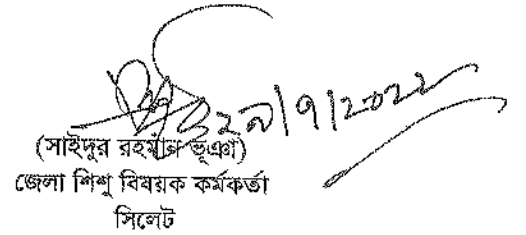 ২৯/৭/২০২২
(সাইদুর রহমান ভূঞা)
জেলা শিশু বিষয়ক কর্মকর্তা
সিলেট